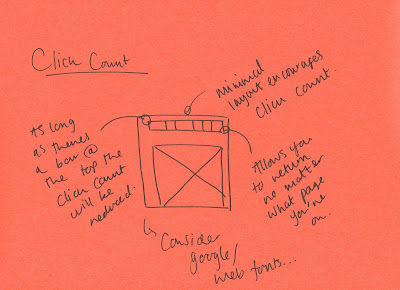 Click Count
minimal
layout encourages
click count.
As long
as theres
a bar @
the top the
click count
will be
reduced.
Allows you
to return
no matter
what page
you're
on.
Consider
google/
web fonts...